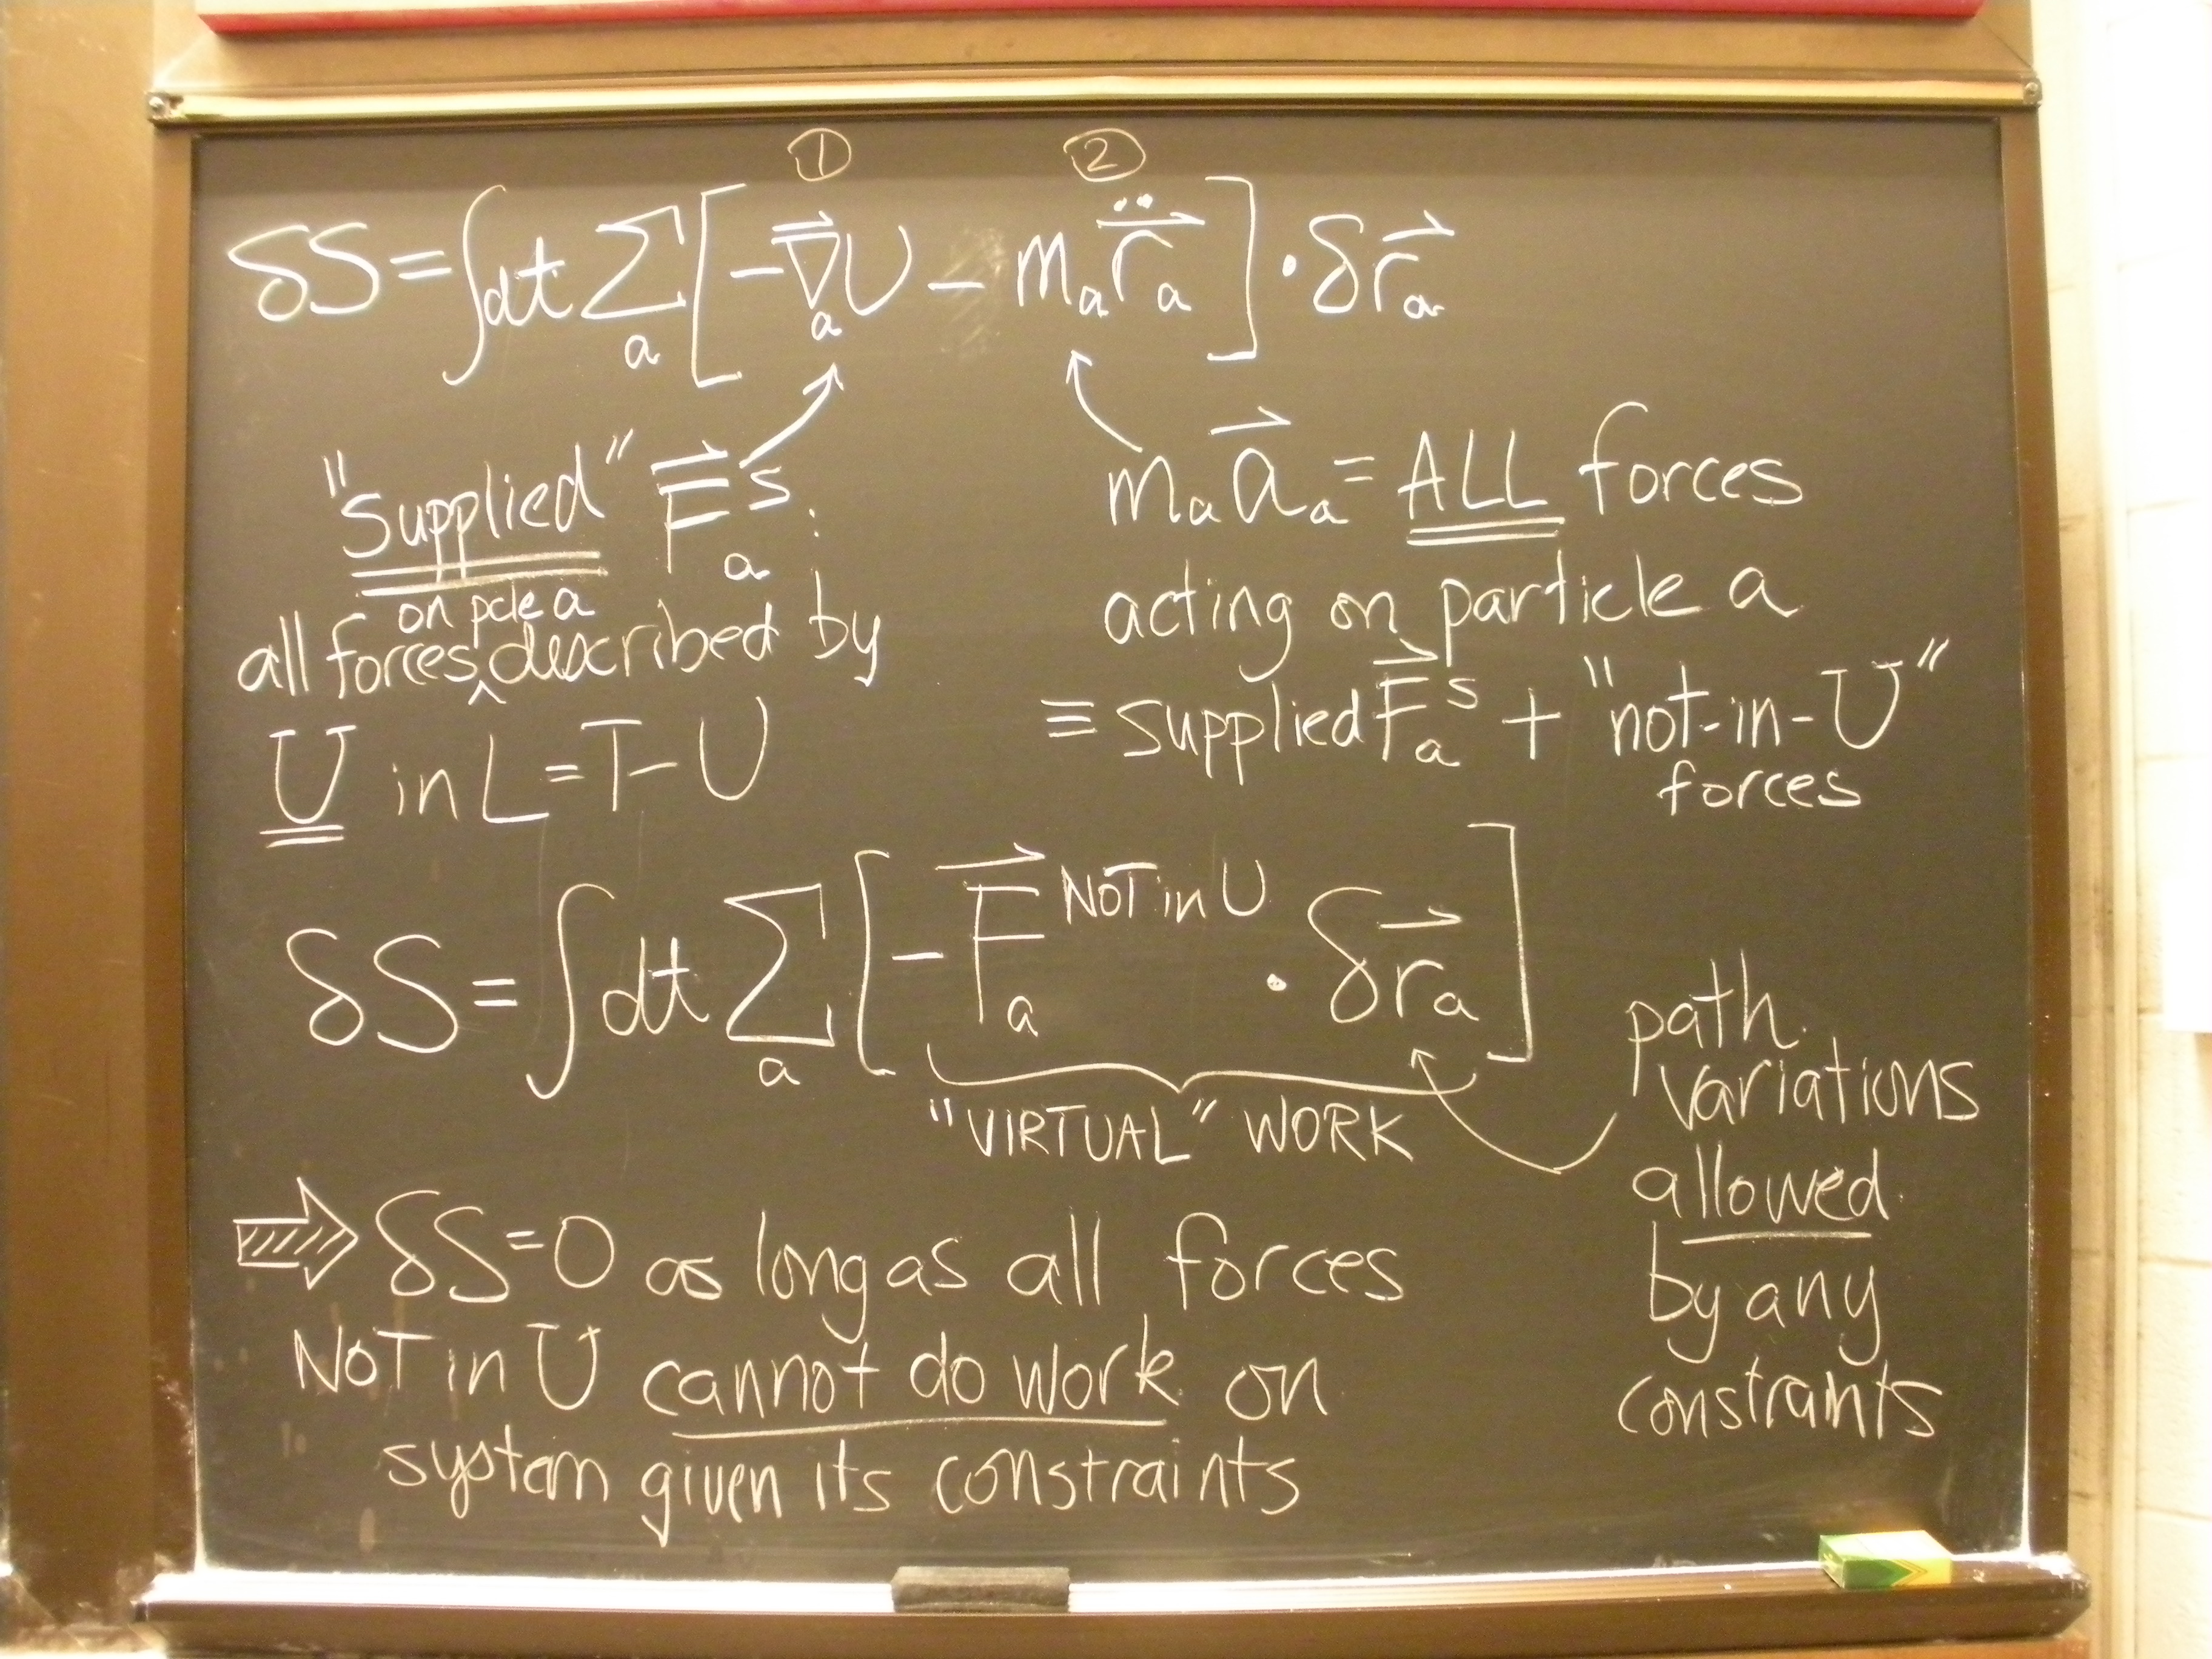 ① ②
δS = ∫dt Σ_a [ −∇⃗_a U − m_a r̈⃗_a ] · δr⃗_a
"Supplied" F⃗_a^S :
on pcle a
all forces ^ described by
U in L = T − U
m_a a⃗_a = ALL forces
acting on particle a
≡ supplied F⃗_a^S + "not-in-U"
forces
δS = ∫dt Σ_a [ − F⃗_a^{NOT in U} · δr⃗_a ]
"VIRTUAL" WORK
path
variations
allowed
by any
constraints
⇒ δS = 0 as long as all forces
NOT in U cannot do work on
system given its constraints